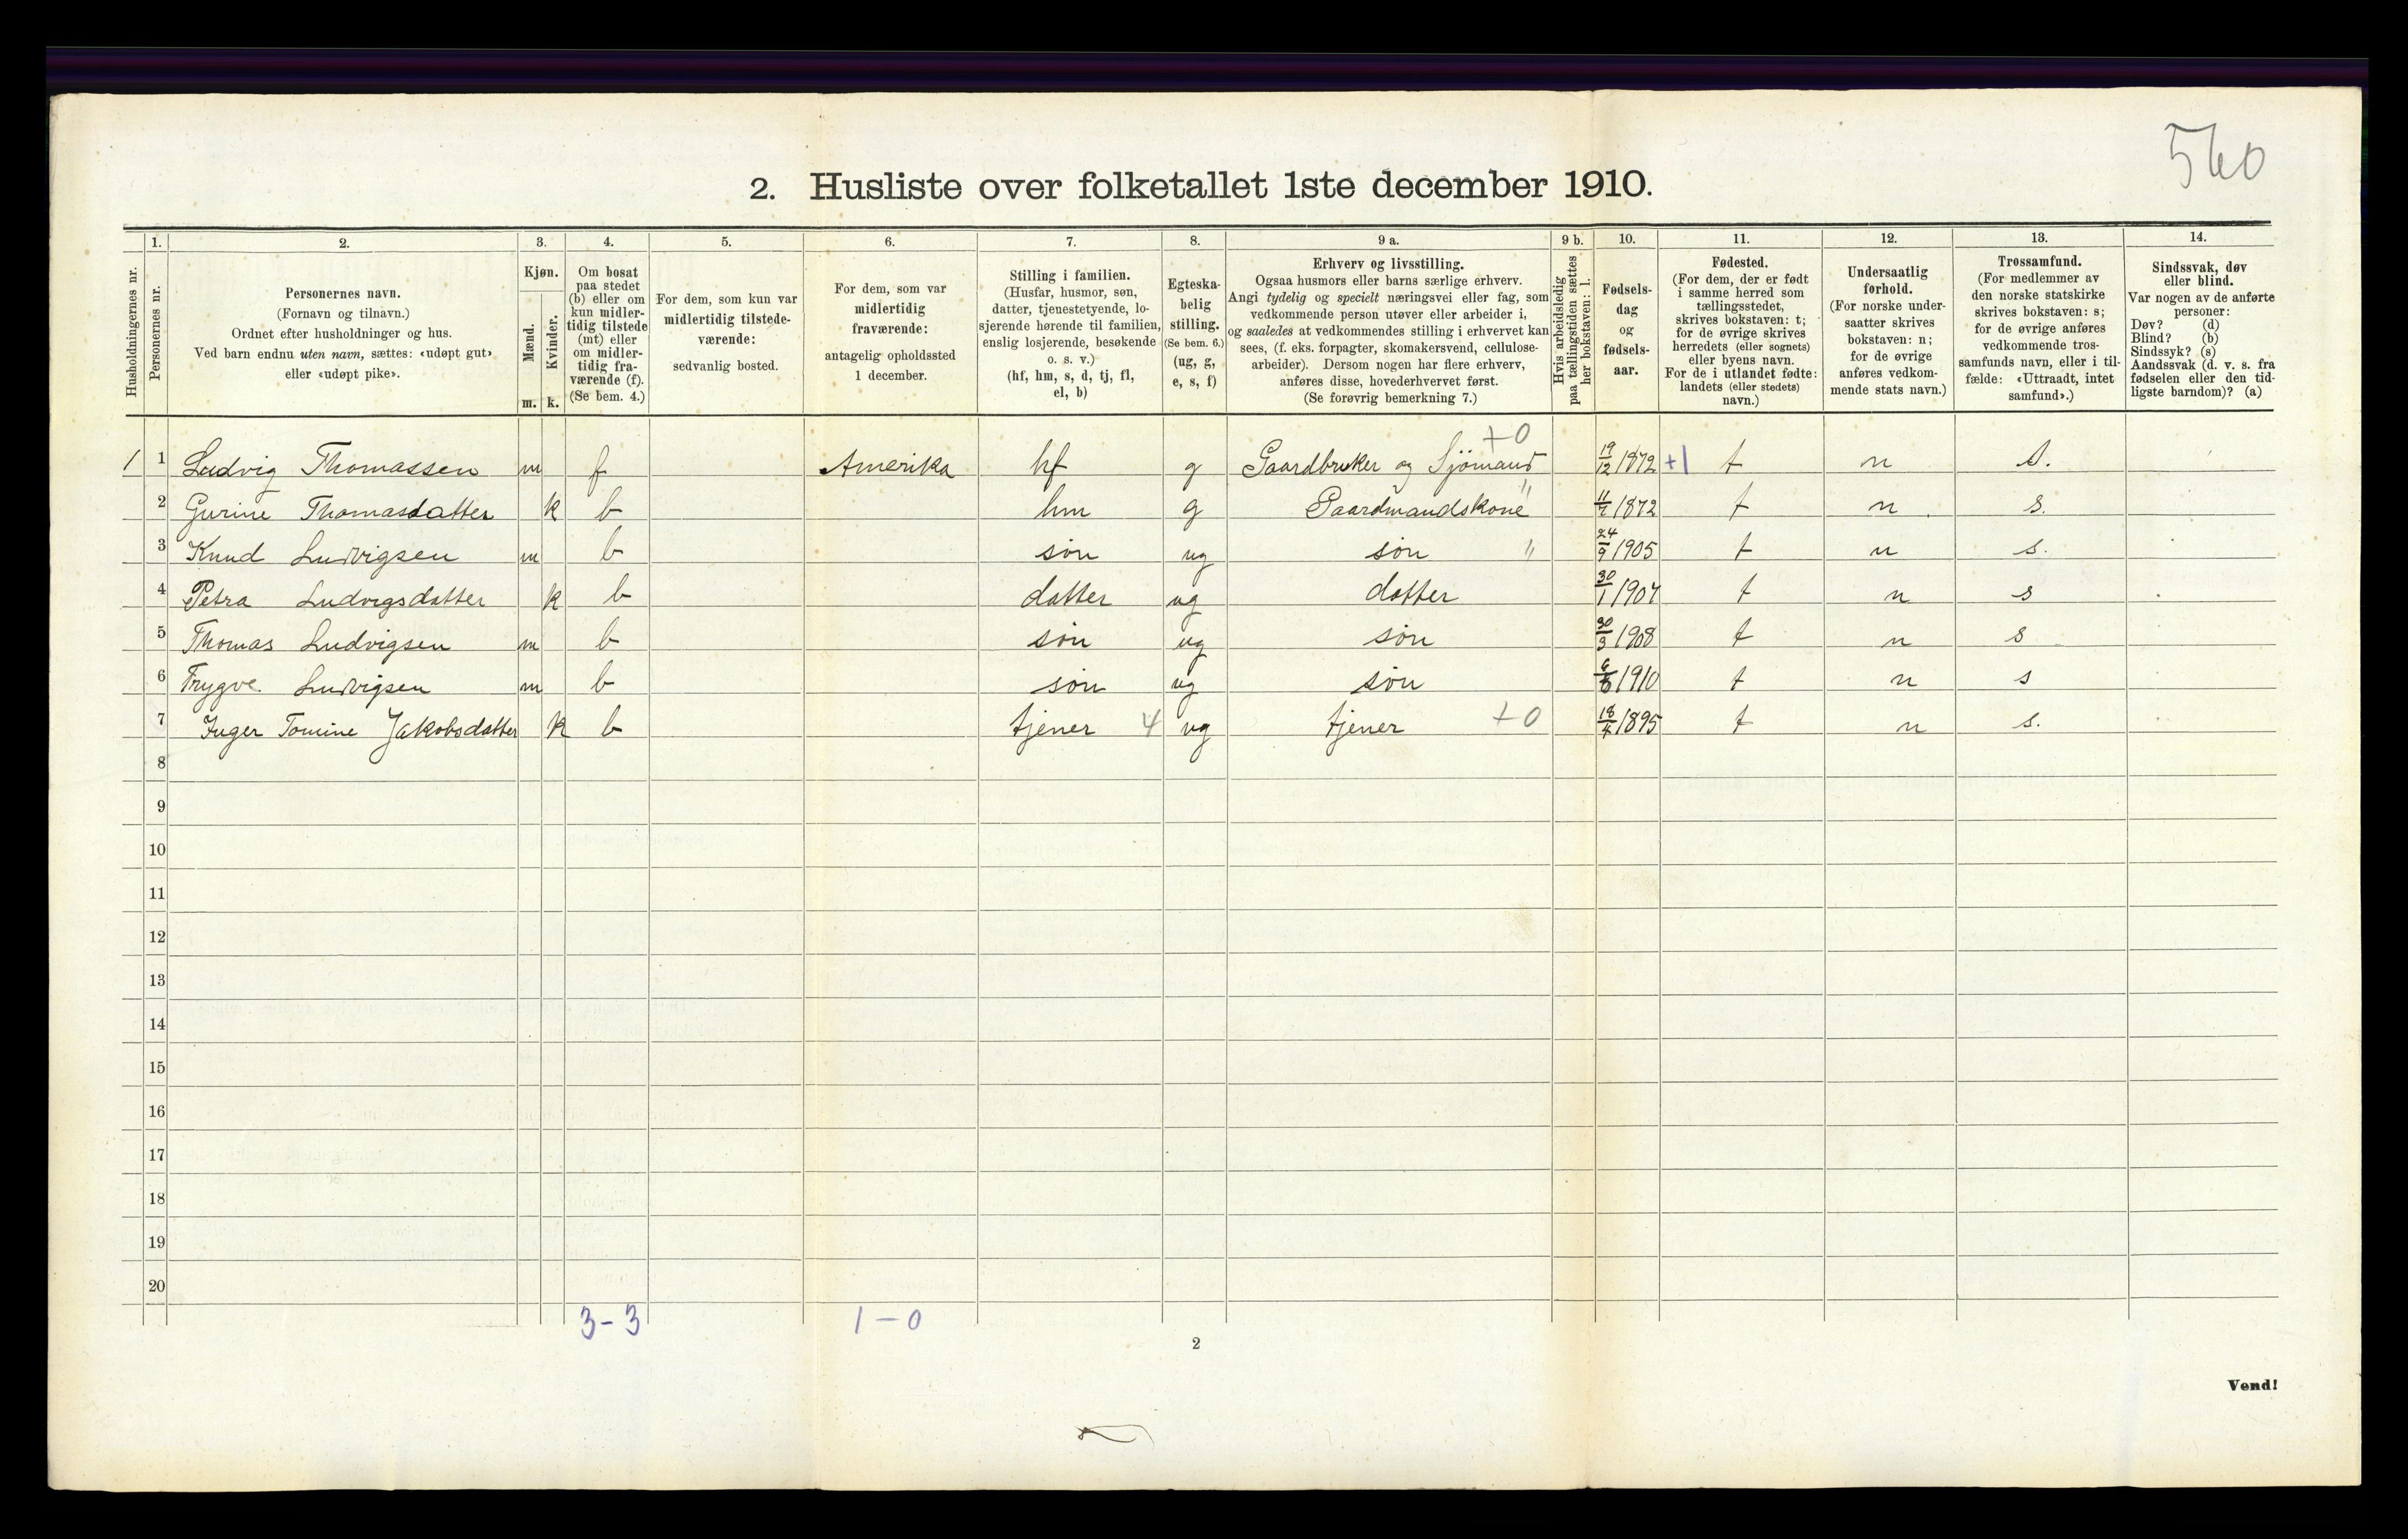 560
2. Husliste over folketallet 1ste december 1910.
Husholdningernes nr.
1.
Personernes nr.
2.
Personernes navn.
(Fornavn og tilnavn.)
Ordnet efter husholdninger og hus.
Ved barn endnu uten navn, sættes: «udøpt gut»
eller «udøpt pike».
3.
Kjøn.
Mænd. Kvinder.
m. k.
4.
Om bosat
paa stedet
(b) eller om
kun midler-
tidig tilstede
(mt) eller
om midler-
tidig fra-
værende (f).
(Se bem. 4.)
5.
For dem, som kun var
midlertidig tilstede-
værende:
sedvanlig bosted.
6.
For dem, som var
midlertidig
fraværende:
antagelig opholdssted
1 december.
7.
Stilling i familien.
(Husfar, husmor, søn,
datter, tjenestetyende, lo-
sjerende hørende til familien,
enslig losjerende, besøkende
o. s. v.)
(hf, hm, s, d, tj, fl,
el, b)
8.
Egteska-
belig
stilling.
(Se bem. 6.)
(ug, g,
e, s, f)
9 a.
Erhverv og livsstilling.
Ogsaa husmors eller barns særlige erhverv.
Angi tydelig og specielt næringsvei eller fag, som
vedkommende person utøver eller arbeider i,
og saaledes at vedkommendes stilling i erhvervet kan
sees, (f. eks. forpagter, skomakersvend, cellulose-
arbeider). Dersom nogen har flere erhverv,
anføres disse, hovederhvervet først.
(Se forøvrig bemerkning 7.)
9 b.
Hvis arbeidsledig
paa tællingstiden sættes
her bokstaven: l.
10.
Fødsels-
dag
og
fødsels-
aar.
11.
Fødested.
(For dem, der er født
i samme herred som
tællingsstedet,
skrives bokstaven: t;
for de øvrige skrives
herredets (eller sognets)
eller byens navn.
For de i utlandet fødte:
landets (eller stedets)
navn.)
12.
Undersaatlig
forhold.
(For norske under-
saatter skrives
bokstaven: n;
for de øvrige
anføres vedkom-
mende stats navn.)
13.
Trossamfund.
(For medlemmer av
den norske statskirke
skrives bokstaven: s;
for de øvrige anføres
vedkommende tros-
samfunds navn, eller i til-
fælde: «Uttraadt, intet
samfund».)
14.
Sindssvak, døv
eller blind.
Var nogen av de anførte
personer:
Døv? (d)
Blind? (b)
Sindssyk? (s)
Aandssvak (d. v. s. fra
fødselen eller den tid-
ligste barndom)? (a)
+0
1 1 Ludvig Thomassen m f Amerika hf g Gaardbruker og Sjömand 19/12 1872 +1 t n s.
2 Gurine Thomasdatter k b hm g Gaardmandskone " 11/7 1872 t n s.
3 Knud Ludvigsen m b sön ug sön " 24/9 1905 t n s.
4 Petra Ludvigsdatter k b datter ug datter 30/1 1907 t n s
5 Thomas Ludvigsen m b sön ug sön 30/3 1908 t n s
6 Trygve Ludvigsen m b sön ug sön 1910 t n s
7 Inger Tomine Jakobsdatter k b tjener 4 ug tjener +0 18/4 1895 t n s.
8
9
10
11
12
13
14
15
16
17
18
19
20
3-3 1-0
2
Vend!